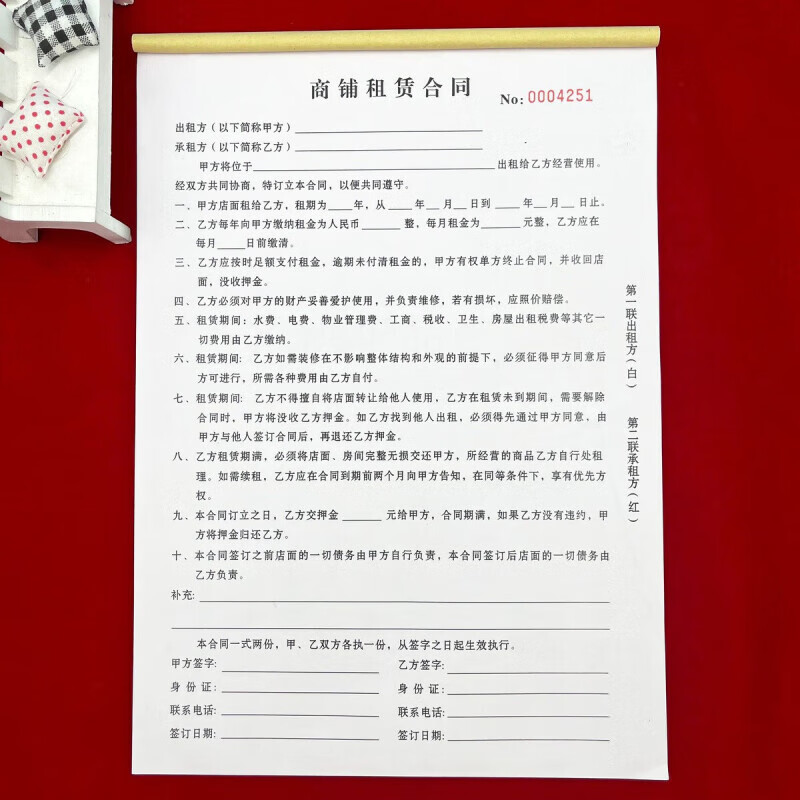 商铺租赁合同
No: 0004251
出租方（以下简称甲方）
承租方（以下简称乙方）
甲方将位于____出租给乙方经营使用。
经双方共同协商，特订立本合同，以便共同遵守。
一、甲方店面租给乙方，租期为____年，从____年__月__日到____年__月__日止。
二、乙方每年向甲方缴纳租金为人民币______整，每月租金为______元整，乙方应在
每月____日前缴清。
三、乙方应按时足额支付租金，逾期未付清租金的，甲方有权单方终止合同，并收回店
面，没收押金。
四、乙方必须对甲方的财产妥善爱护使用，并负责维修，若有损坏，应照价赔偿。
五、租赁期间：水费、电费、物业管理费、工商、税收、卫生、房屋出租税费等其它一
切费用由乙方缴纳。
六、租赁期间：乙方如需装修在不影响整体结构和外观的前提下，必须征得甲方同意后
方可进行，所需各种费用由乙方自付。
七、租赁期间：乙方不得擅自将店面转让给他人使用，乙方在租赁未到期间，需要解除
合同时，甲方将没收乙方押金。如乙方找到他人出租，必须得先通过甲方同意，由
甲方与他人签订合同后，再退还乙方押金。
八、乙方租赁期满，必须将店面、房间完整无损交还甲方，所经营的商品乙方自行处租
理。如需续租，乙方应在合同到期前两个月向甲方告知，在同等条件下，享有优先方
权。
九、本合同订立之日，乙方交押金______元给甲方，合同期满，如果乙方没有违约，甲
方将押金归还乙方。
十、本合同签订之前店面的一切债务由甲方自行负责，本合同签订后店面的一切债务由
乙方负责。
补充：
本合同一式两份，甲、乙双方各执一份，从签字之日起生效执行。
甲方签字：
乙方签字：
身份证：
身份证：
联系电话：
联系电话：
签订日期：
签订日期：
第一联出租方（白）
第二联承租方（红）